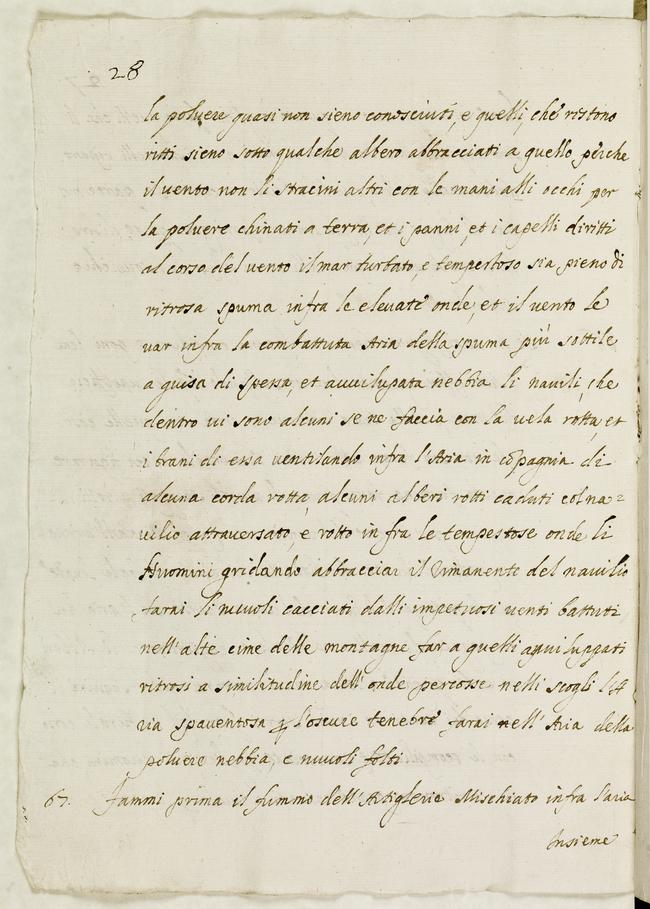 28
la polvere quasi non sieno conosciuti, e quelli, che restono
ritti sieno sotto qualche albero abbracciati a quello perche
il vento non li stracini altri con le mani alli occhi per
la polvere chinati a terra, et i panni, et i capelli diritti
al corso del vento il mar turbato, e tempestoso sia pieno di
ritrosa spuma infra le elevate onde, et il vento le
var infra la combattuta Aria della spuma più sottile
a guisa di spersa, et auuilupata nebbia li nauili, che
dentro ui sono alcuni se ne faccia con la vela rotta, et
i brani di essa ventilando infra l'Aria in cõpagnia di
alcuna corda rotta, alcuni alberi rotti caduti col na=
uilio attraversato, e rotto in fra le tempestose onde li
Huomini gridando abbracciar il rimanente del nauilio
farai li nuuoli cacciati dalli impetuosi venti battuti
nell'alte cime delle montagne far a quelli auuiluppati
ritrosi a similitudine dell'onde percosse nelli scogli l'A
ria spaventosa ꝑ l'oscure tenebre farai nell'Aria della
polvere nebbia, e nuuoli folti
67. Fammi prima il fummo dell'Artiglerie Mischiato infra l'aria
Insieme